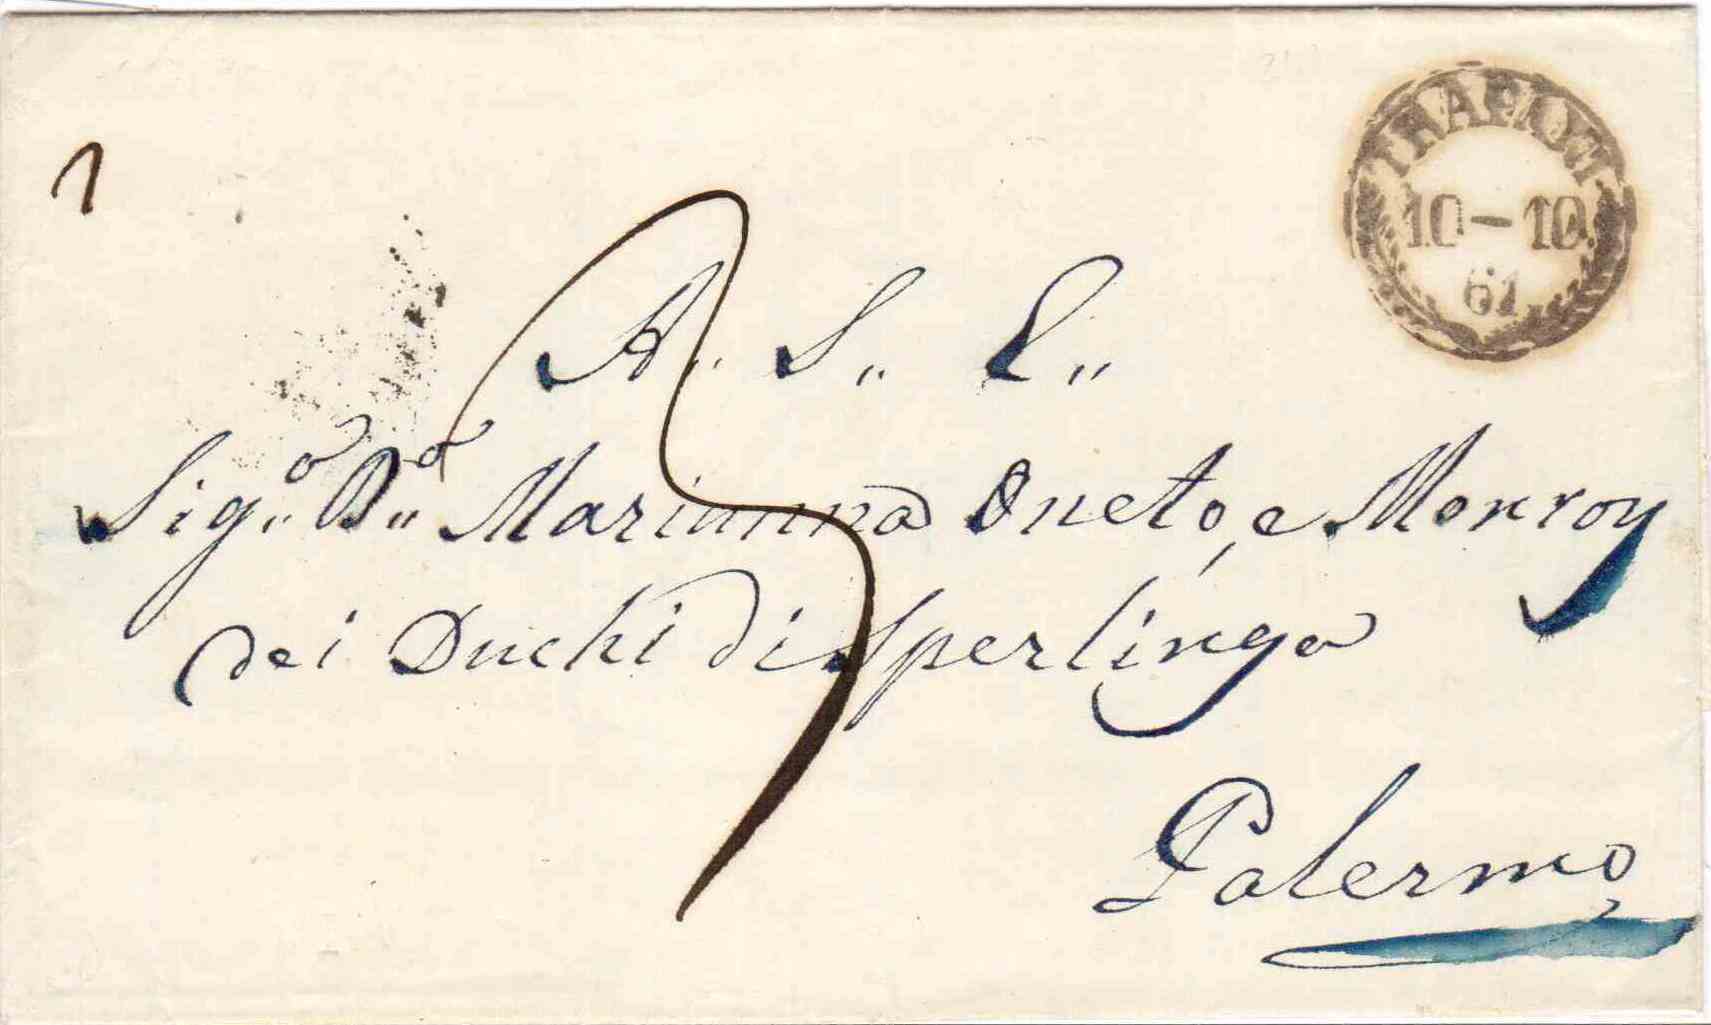 1
10-10
61
3
A„ S„ E„
Sig.ª„ D.ª„ Marianna Oneto, e Monroy
dei Duchi di Sperlinga
Palermo